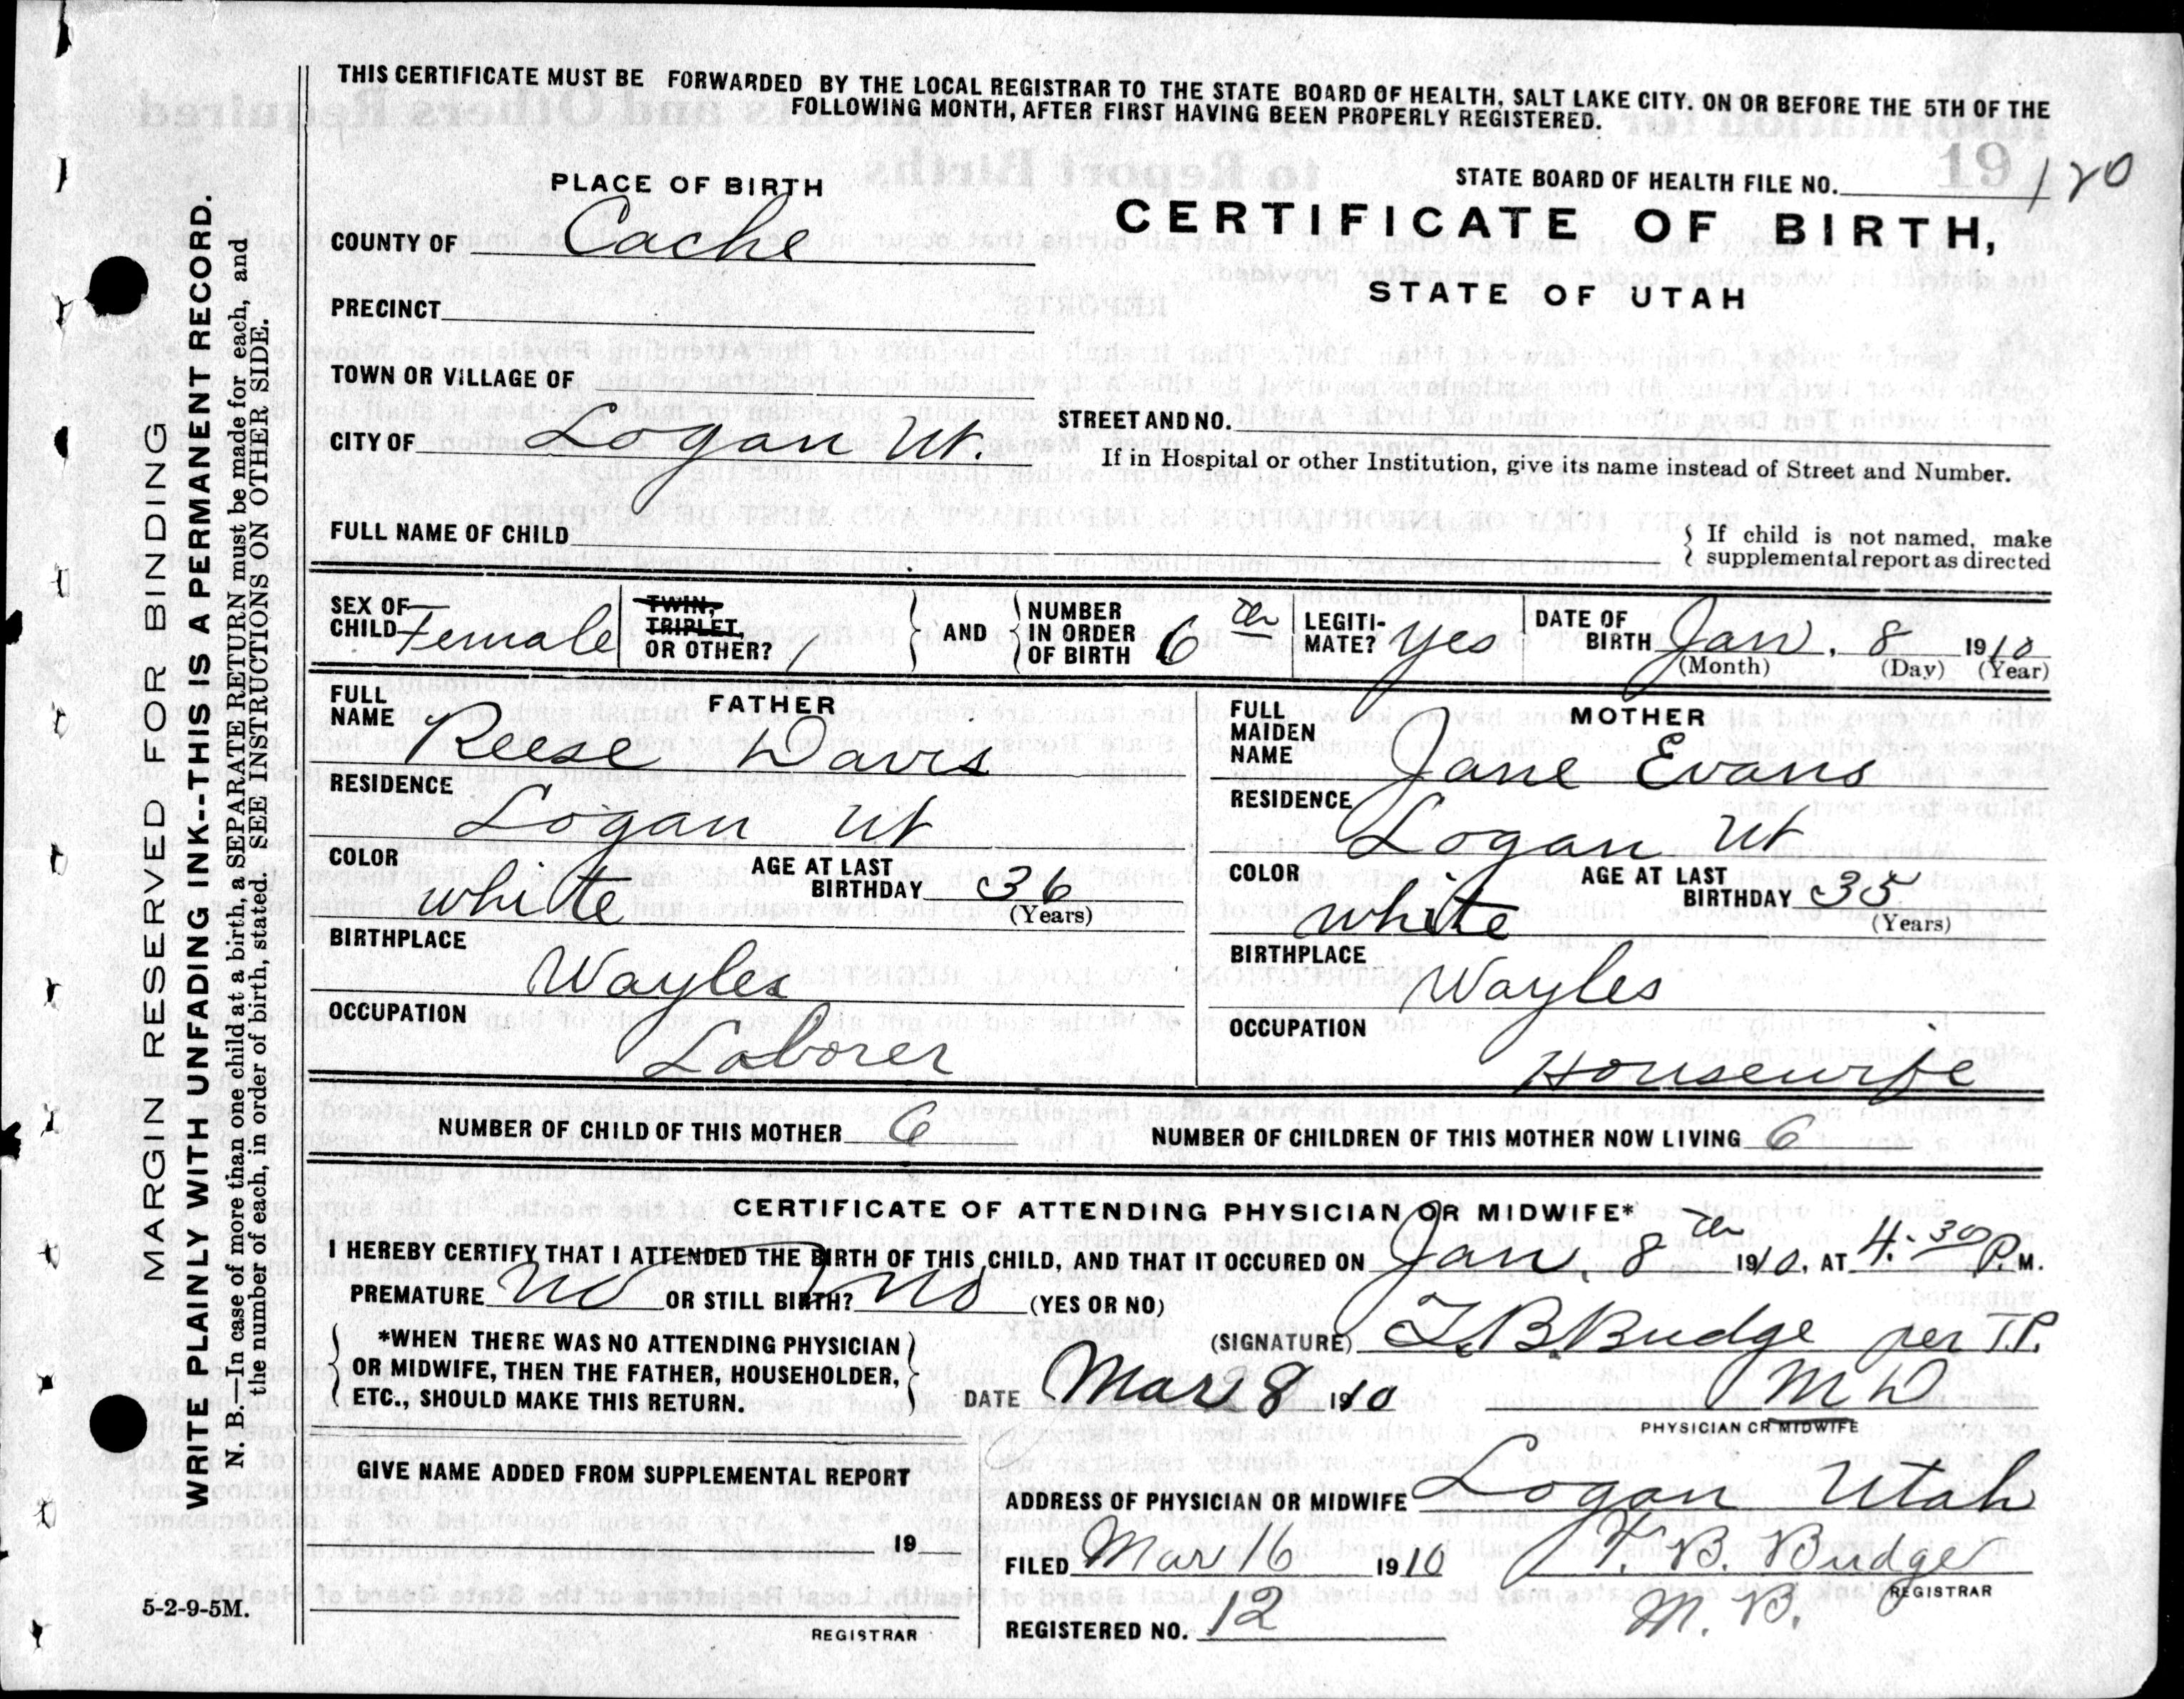 THIS CERTIFICATE MUST BE FORWARDED BY THE LOCAL REGISTRAR TO THE STATE BOARD OF HEALTH, SALT LAKE CITY. ON OR BEFORE THE 5TH OF THE
FOLLOWING MONTH, AFTER FIRST HAVING BEEN PROPERLY REGISTERED.
PLACE OF BIRTH
STATE BOARD OF HEALTH FILE NO. 19 120
COUNTY OF Cache
CERTIFICATE OF BIRTH,
STATE OF UTAH
PRECINCT
TOWN OR VILLAGE OF
CITY OF Logan Ut.
STREET AND NO.
If in Hospital or other Institution, give its name instead of Street and Number.
FULL NAME OF CHILD
{ If child is not named, make
supplemental report as directed
SEX OF CHILD Female
TWIN, TRIPLET, OR OTHER? 1
AND
NUMBER IN ORDER OF BIRTH 6th
LEGITIMATE? yes
DATE OF BIRTH Jan. 8 1910
(Month) (Day) (Year)
FATHER
FULL NAME Reese Davis
RESIDENCE
Logan Ut
COLOR white
AGE AT LAST BIRTHDAY 36
(Years)
BIRTHPLACE
Wayles
OCCUPATION
Laborer
MOTHER
FULL MAIDEN NAME Jane Evans
RESIDENCE
Logan Ut
COLOR white
AGE AT LAST BIRTHDAY 35
(Years)
BIRTHPLACE
Wayles
OCCUPATION
Housewife
NUMBER OF CHILD OF THIS MOTHER 6
NUMBER OF CHILDREN OF THIS MOTHER NOW LIVING 6
CERTIFICATE OF ATTENDING PHYSICIAN OR MIDWIFE*
I HEREBY CERTIFY THAT I ATTENDED THE BIRTH OF THIS CHILD, AND THAT IT OCCURED ON Jan. 8th 1910, AT 4:30 P. M.
PREMATURE No OR STILL BIRTH? No (YES OR NO)
*WHEN THERE WAS NO ATTENDING PHYSICIAN
OR MIDWIFE, THEN THE FATHER, HOUSEHOLDER,
ETC., SHOULD MAKE THIS RETURN.
(SIGNATURE) T.B. Budge per T.P.
M D
PHYSICIAN OR MIDWIFE
DATE Mar 8 1910
GIVE NAME ADDED FROM SUPPLEMENTAL REPORT
19
REGISTRAR
ADDRESS OF PHYSICIAN OR MIDWIFE Logan Utah
FILED Mar 16 1910
T. B. Budge
REGISTRAR
M. B.
REGISTERED NO. 12
5-2-9-5M.
MARGIN RESERVED FOR BINDING
WRITE PLAINLY WITH UNFADING INK--THIS IS A PERMANENT RECORD.
N. B.—In case of more than one child at a birth, a SEPARATE RETURN must be made for each, and
the number of each, in order of birth, stated. SEE INSTRUCTIONS ON OTHER SIDE.